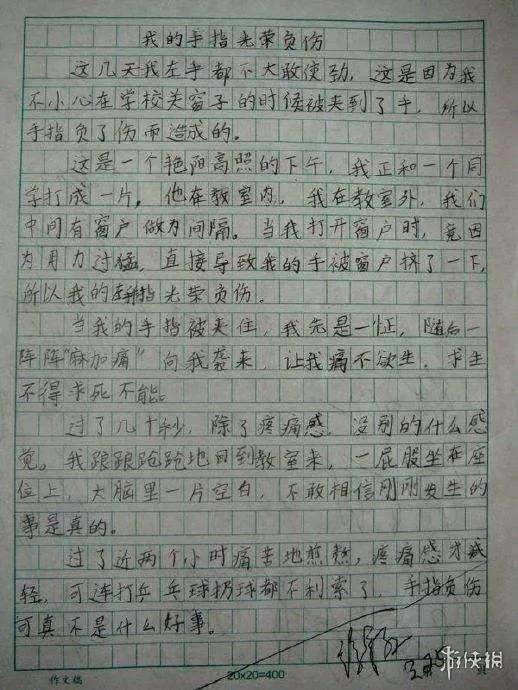 我的手指光荣负伤
这几天我左手都不大敢使劲，这是因为我
不小心在学校关窗子的时候被夹到了手，所以
手指负了伤而造成的。
这是一个艳阳高照的下午，我正和一个同
学打成一片。他在教室内，我在教室外，我们
中间有窗户做为间隔。当我打开窗户时，竟因
为用力过猛，直接导致我的手被窗户挤了一下，
所以我的手指光荣负伤.
当我的手指被夹住，我先是一怔，随后一
阵阵“麻加痛”向我袭来，让我痛不欲生，求生
不得求死不能
过了几十秒，除了疼痛感，没别的什么感
觉。我踉踉跄跄地回到教室来，一屁股坐在座
位上，大脑里一片空白，不敢相信刚刚发生的
事是真的。
过了近两个小时痛苦地煎熬，疼痛感才减
轻，可连打乒乓球扔球都不利索了，手指负伤
可真不是什么好事。
作文稿
20×20=400
页
游侠网